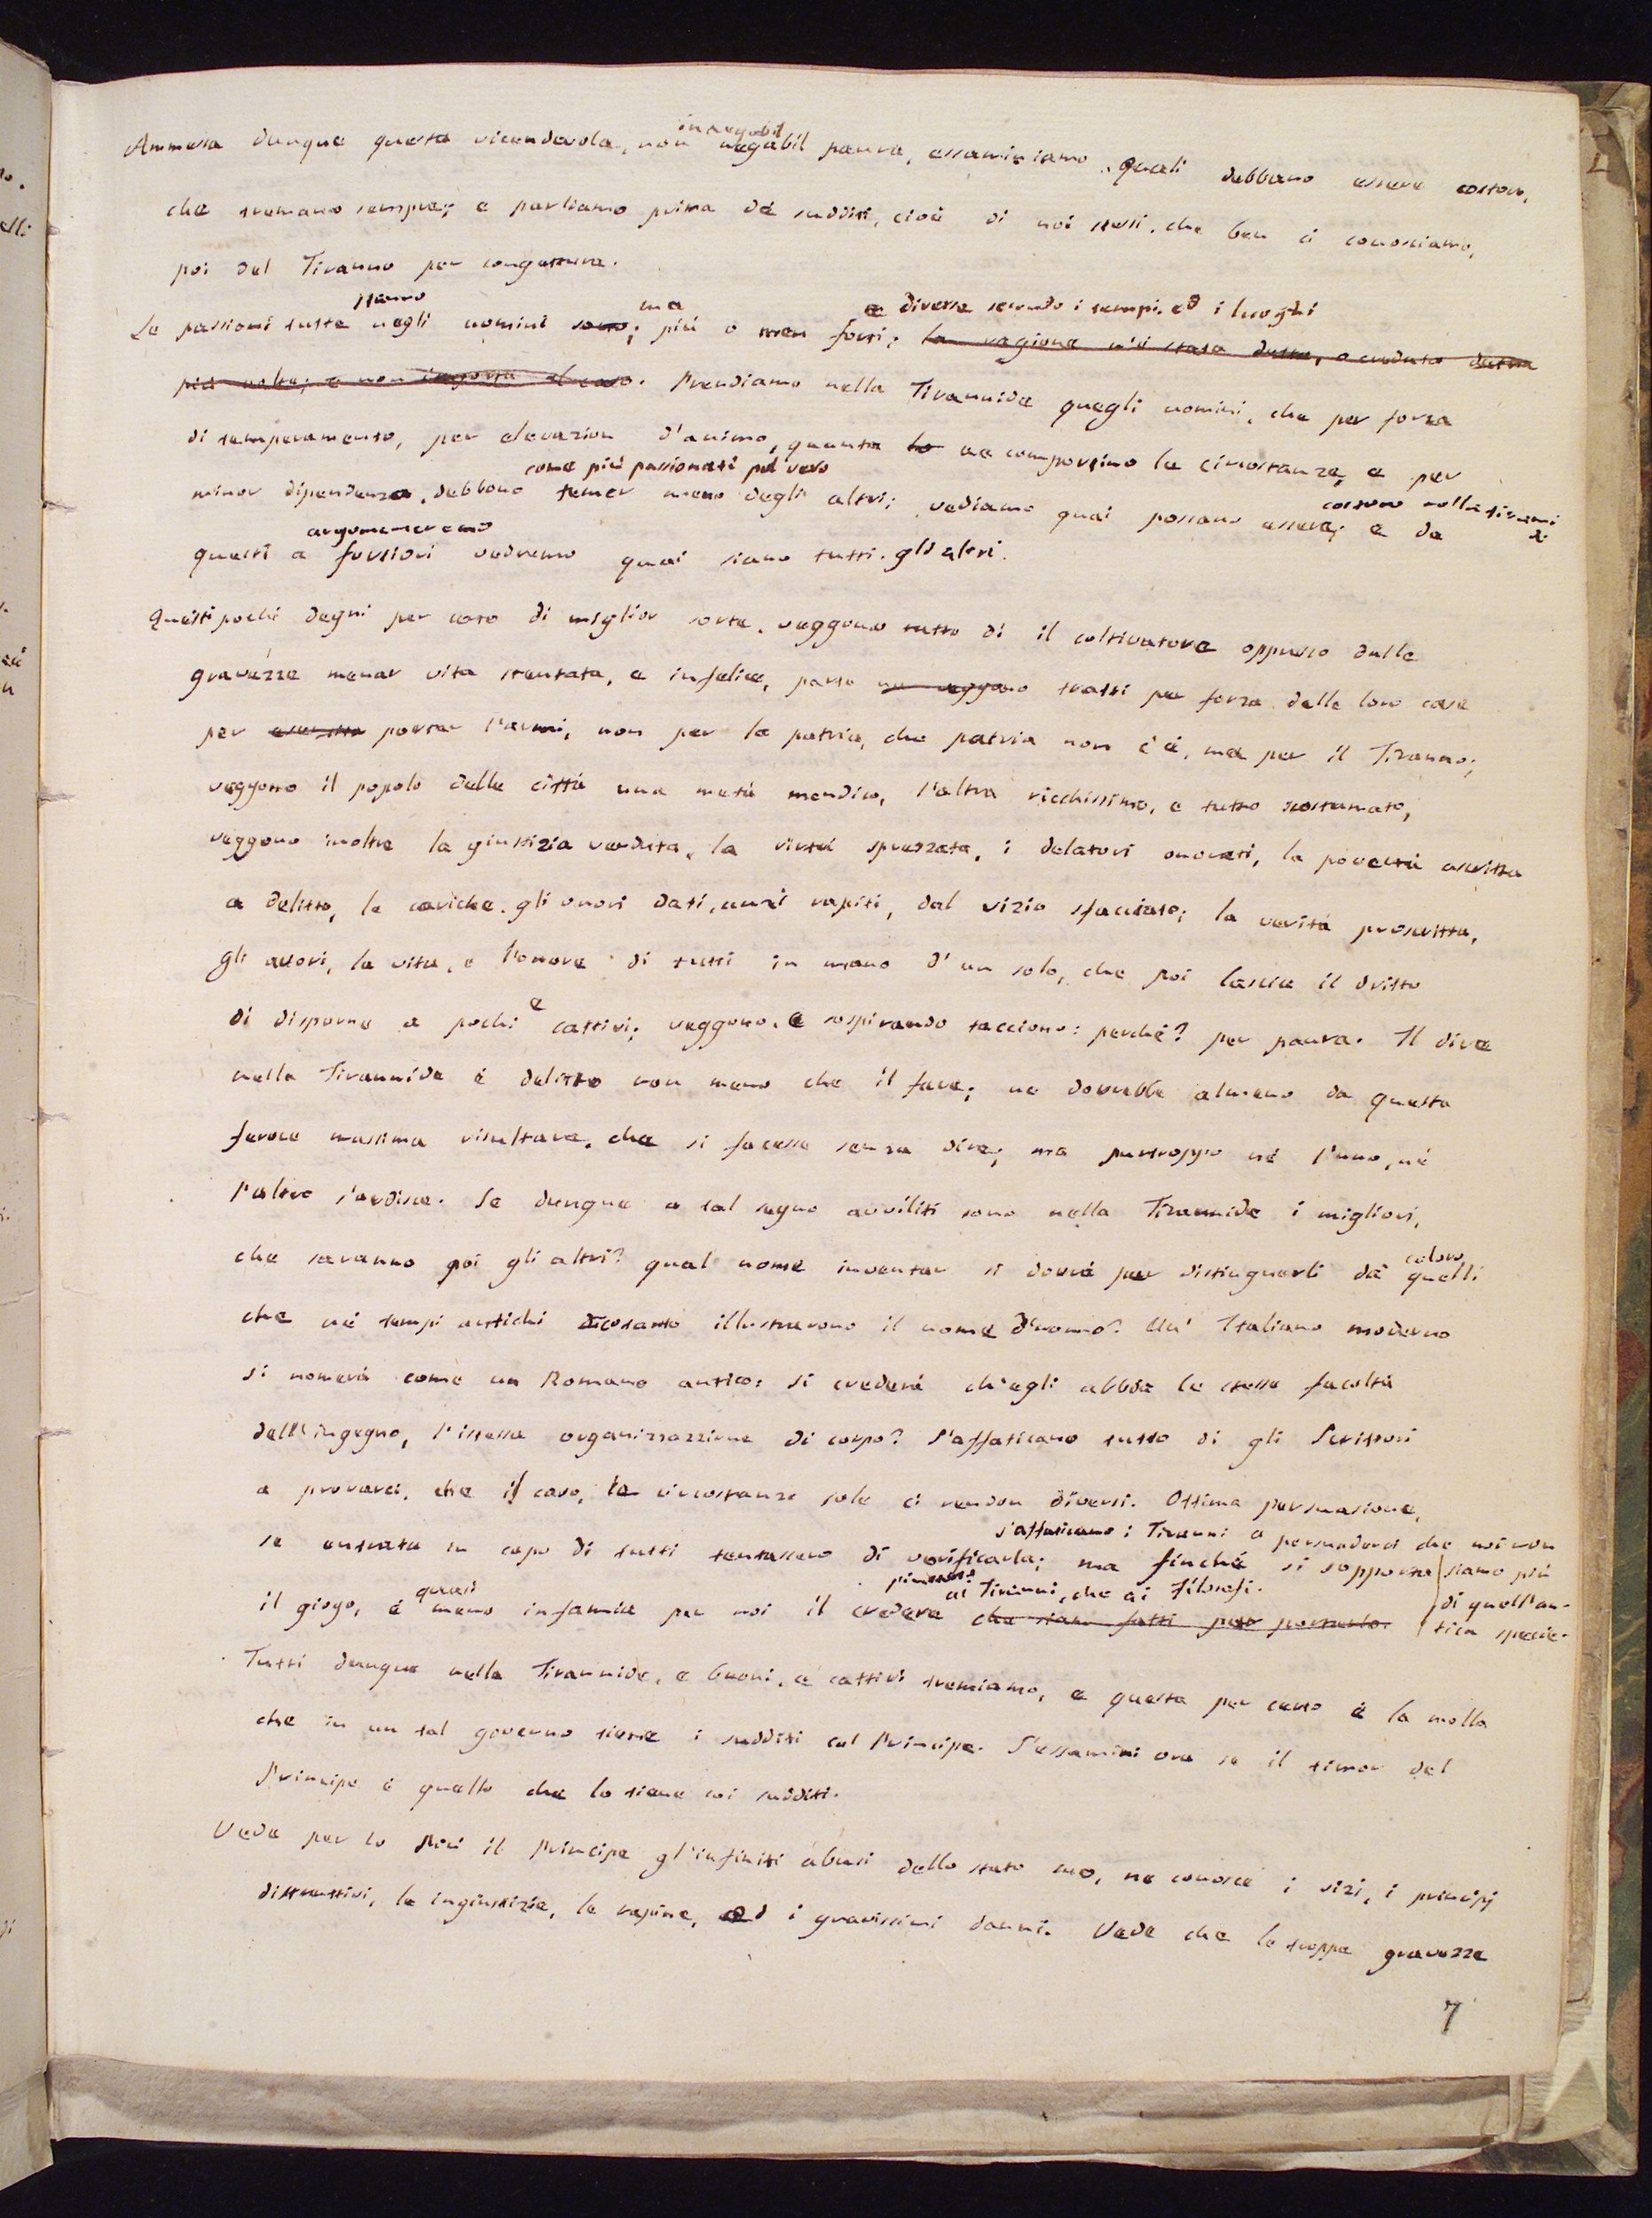 innegabil
Ammessa dunque questa vicendevole, non negabil paura, essaminiamo. Quali debbano essere costoro,
che tremano sempre; e parliamo prima dé sudditi, cioè di noi stessi, che ben ci conosciamo,
poi del Tiranno per congettura.
stanno ma e diverse secondo i tempi, ed i luoghi
Le passioni tutte negli uomini sono; più o men forti; la ragione n'è stata detta, o creduta detta
più volte; e non importa al caso. Prendiamo nella Tirannide quegli uomini, che per forza
di temperamento, per elevazion d'animo, quanto lo comportino le circostanze, e per
come più passionati pel vero costoro nella tirannide
minor dipendenza, debbono temer meno degli altri; vediamo quai possano essere; e da
argomenteremo
questi a fortiori vedremo quai siano tutti gli altri.
Questi pochi degni per certo di miglior sorte, veggono tutto dì il coltivatore oppresso dalle
gravezze menar vita stentata, e infelice, parte ne veggono tratti per forza dalle loro case
per portar l'armi, non per la patria, che patria non c'è, ma per il Tiranno;
veggono il popolo delle città una metà mendico, l'altra ricchissimo, e tutto scostumato,
veggono inoltre la giustizia venduta, la virtù sprezzata, i delatori onorati, la povertà ascritta
a delitto, le cariche, gli onori dati, anzi rapiti, dal vizio sfacciato; la verità proscritta,
gli averi, la vita, e l'onore di tutti in mano d'un solo, che poi lascia il dritto
e
di disporne a pochi cattivi; veggono, e sospirando tacciono: perché? per paura. Il dire
nella Tirannide è delitto non meno che il fare; ne dovrebbe almeno da questa
feroce massima risultare, che si facesse senza dire; ma purtroppo né l'uno, né
l'altro s'ardisce. Se dunque a tal segno avviliti sono nella Tirannide i migliori,
coloro
che saranno poi gli altri? qual nome inventar si dovrà per distinguerli da quelli
che né tempi antichi cotanto illustrarono il nome d'uomo? Un' Italiano moderno
si nomerà come un Romano antico: si crederà ch'egli abbia le stesse facoltà
dell'ingegno, l'istessa organizzazzione di corpo? S'affaticano tutto dì gli Scrittori
a provarci, che il caso, le circostanze sole ci rendon diversi. Ottima persuasione,
s'affaticano i Tiranni a persuaderci che noi non
se entrata in capo di tutti tentassero di verificarla; ma finché si sopporta siamo più
quasi piuttosto ai Tiranni, che ai Filosofi. di quell'an-
il giogo, è meno infamia per noi il credere che siamo fatti per portarlo. tica specie.
Tutti dunque nella Tirannide, e buoni, e cattivi tremiamo, e questa per certo è la molla
che in un tal governo tiene i sudditi col Principe. S'essamini ora se il timor del
Principe è quello che lo tiene coi sudditi.
Vede per lo più il Principe gl'infiniti abusi dello stato suo, ne conosce i vizi, i principj
distruttivi, le ingiustizie, le rapine, ed i gravissimi danni. Vede che le troppe gravezze
7